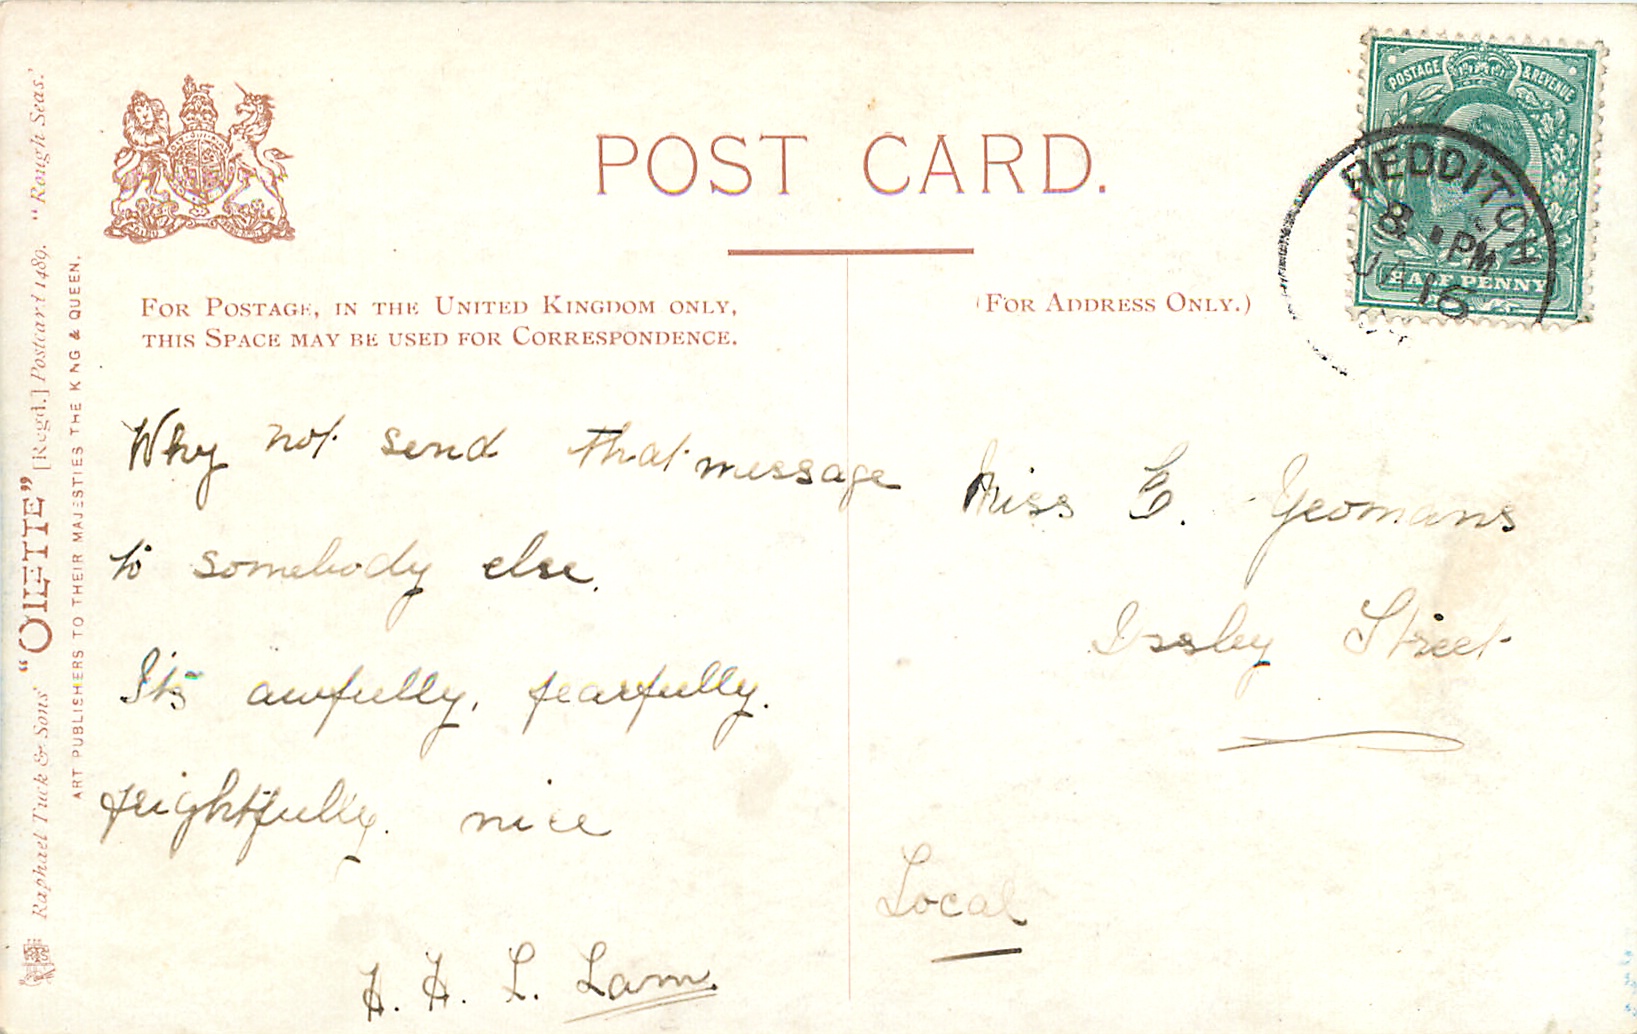 POST CARD.
POSTAGE & REVENUE
HALFPENNY
REDDITCH
8 PM
JA 16
FOR POSTAGE, IN THE UNITED KINGDOM ONLY,
THIS SPACE MAY BE USED FOR CORRESPONDENCE.
(FOR ADDRESS ONLY.)
Why not send that message
to somebody else.
Its awfully, fearfully.
frightfully. nice
H. H. L. Lam.
Miss E. Yeomans
Issley Street
Local
Raphael Tuck & Sons' "OILETTE" [Regd.] Postcard 1489. "Rough Seas.'
ART PUBLISHERS TO THEIR MAJESTIES THE KING & QUEEN.